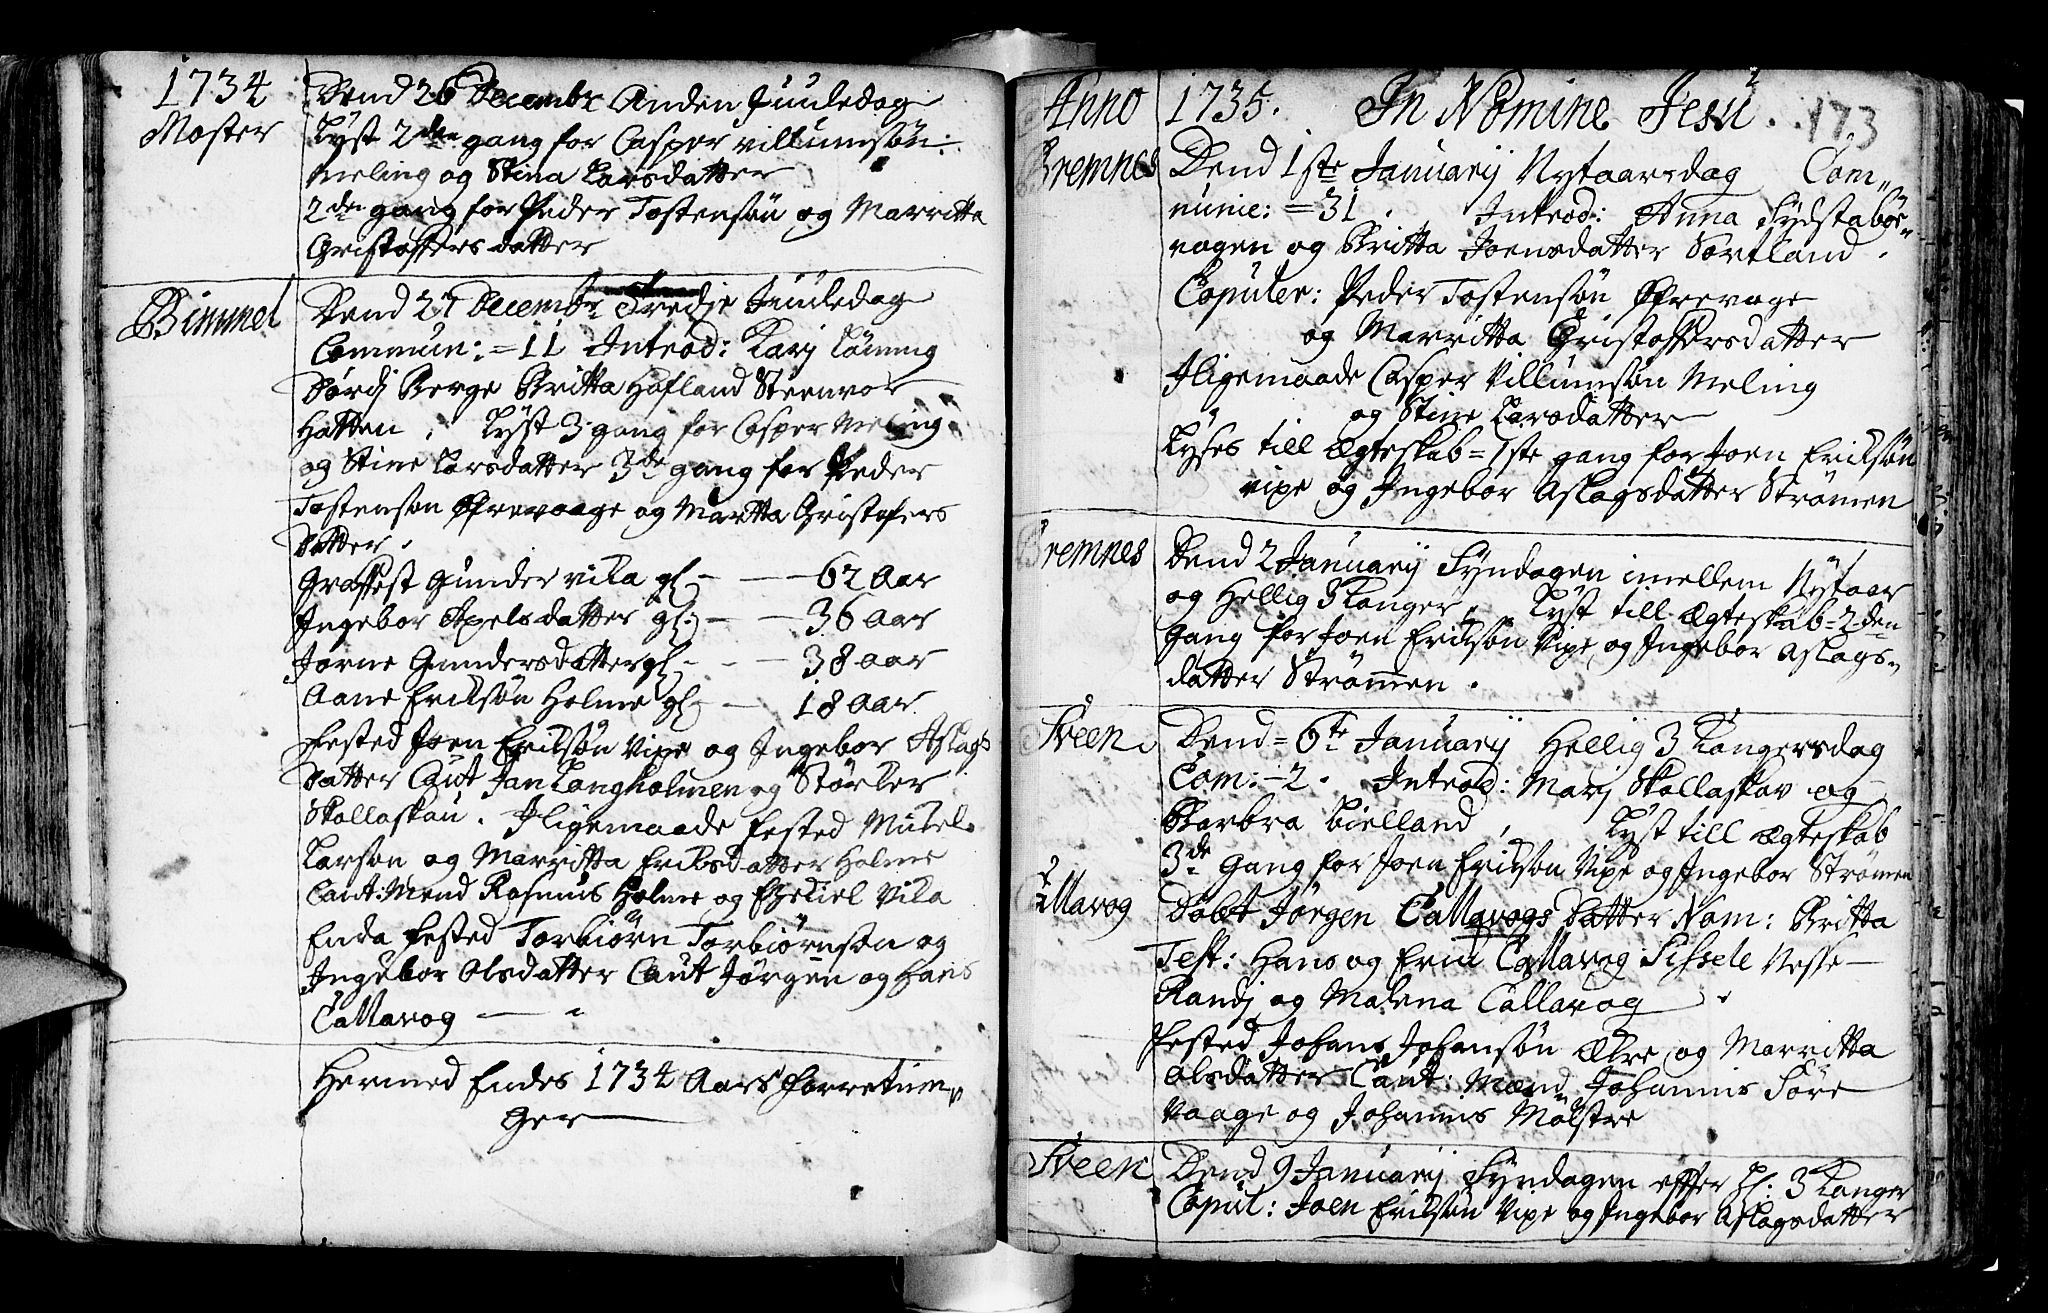 1734
Moster
Dend 26 Decembr Anden Juuledag
Lyst 2den gang for Casper villumsøn
Meling og Stina Larsdatter
2den gang for Peder Tostensøn og Marritta
Christoffers datter
Bømmel
Dend 27 Decembr Tredje Juuledag
Commun: = 11 Introd: Karj Lønning
Berge Britta Hofland Steenvor
Hatten. Lyst 3 gang for Casper Meling
og Stine Larsdatter 3de gang for Peder
Tostensøn Øfrevaage og Maritta Christofers
datter.
Graffest Gunder vika gl. - — 62 Aar
Ingebor Apelsdatter gl: - — 36 Aar
Jorne Gundersdatter gl - - — 38 aar
Aane Eriksøn Holme gl: — 18 Aar
Fested Joen Eriksøn Vipe og Ingebor Aslags
datter Caut Jan Langholmen og Størker
Skollaskau. Iligemaade fested Mikel
Larsøn og Marritta Eriksdatter Holme
Caut: Mend Rasmus Holme og Ezekiel Vika
Enda fested Torbiørn Torbiørnsøn og
Ingebor Olsdatter Caut Jørgen og Hans
Callavog
Hermed Endes 1734 Aars forretnin„
ger
Anno 1735. In Nomine Jesu. 173
Bremnes
Dend 1ste Januarij Nytaarsdag Com„
munic: = 31. Introd: Anna Sydstabøe„
vagen og Britta Joensdatter Sortland.
Copuler: Peder Tostensøn Øfrevage
og Marritta Christoffersdatter
Iligemaade Casper Villumsøn Meling
og Stine Larsdatter
Lyses till Ægteskab = 1ste gang for Joen Eriksøn
vipe og Ingebor Aslagsdatter Strømen
Bremnes
Dend 2 Januarij Syndagen imellem Nytaar
og Hellig 3 Konger, Lyst till Ægteskab = 2den
Gang for Joen Eriksøn Vipe og Ingebor Aslags„
datter Strømen.
Sveen
Dend = 6te Januarij Hellig 3 Kongersdag
Com: = 2. Introd: Marj Skollaskav og
Barbra Bielland, Lyst till ægteskab
3de Gang for Joen Eriksøn Vipe og Ingebor Strømen
Callavog
Døbt Jørgen Callavogs datter Nom: Britta
Test: Hans og Erik Callavog Sissele Nesse
Randj og Malena Callavog.
Fested Johans Johansøn Økre og Marritta
Olsdatter Caut: Mænd Johannis Søre
Vaage og Johannis Mølstre
Sveen
Dend 9 Januarij Syndagen effter Hl: 3 Konger
Copul: Joen Eriksøn Vipe og Ingebor Aslagsdatter